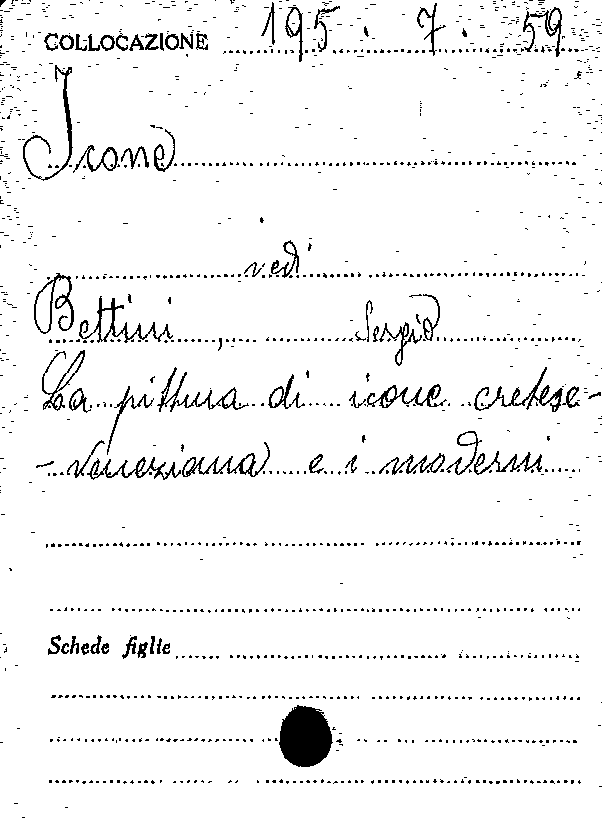 COLLOCAZIONE 195. 7. 59
Icone
vedi
Bettini, Sergio
La pittura di icone cretese-
-veneziana e i moderni
Schede figlie